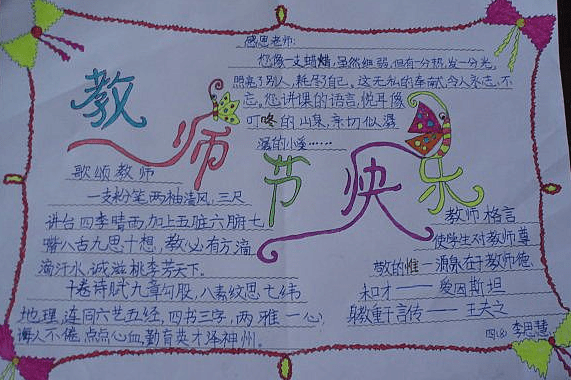 感恩老师:
您像一支蜡烛,虽然细弱,但有一分热,发一分光,
照亮了别人,耗尽了自己。这无私的奉献,令人永志不
忘。您讲课的语言,悦耳像
叮咚的山泉,亲切似潺
潺的小溪……
教师节快乐
歌颂教师
一支粉笔,两袖清风,三尺
讲台四季晴雨,加上五脏六腑七
嘴八舌九思十想,教必有方滴
滴汗水,诚滋桃李芳天下。
十卷诗赋九章勾股,八索纹思七纬
地理,连同六艺五经,四书三字,两雅一心
诲人不倦,点点心血,勤育英才泽神州。
教师格言
使学生对教师尊
敬的惟一源泉在于教师德
和才——爱因斯坦
身教重于言传——王夫之
李思慧